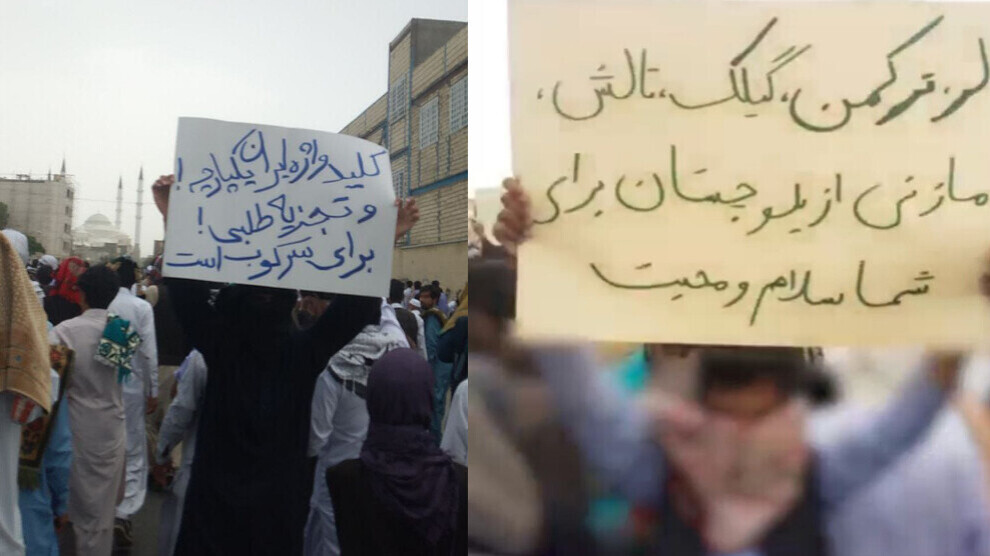 کلید واژه ایران یکپارچه!
و تجزیه طلبی!
برای سرکوب است
لر، ترکمن، گیلک، تالش،
مازنی از بلوچستان برای
شما سلام و محبت